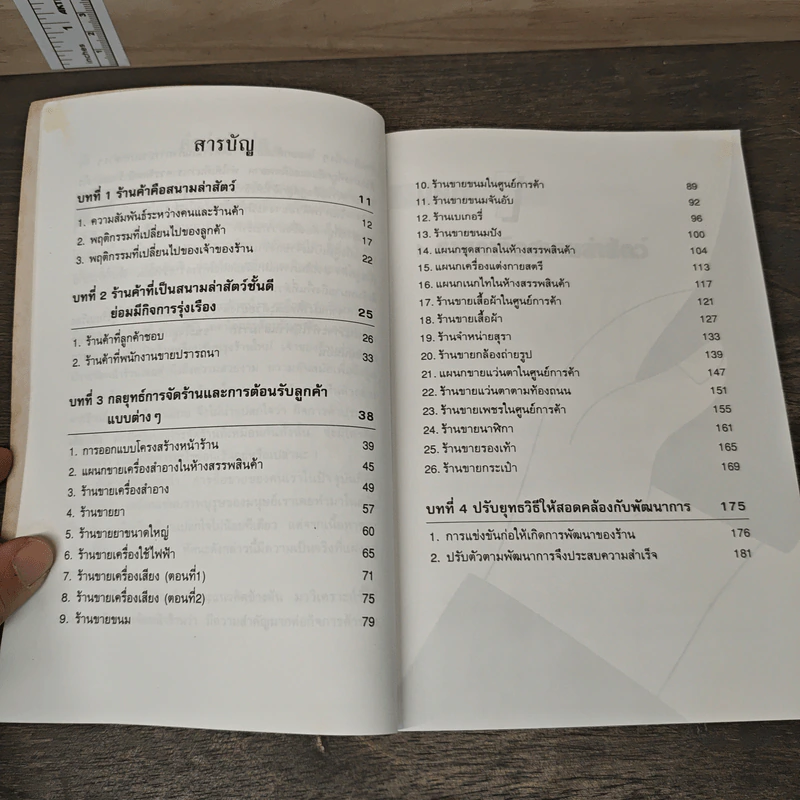 สารบัญ
บทที่ 1 ร้านค้าคือสนามล่าสัตว์ 11
1. ความสัมพันธ์ระหว่างคนและร้านค้า 12
2. พฤติกรรมที่เปลี่ยนไปของลูกค้า 17
3. พฤติกรรมที่เปลี่ยนไปของเจ้าของร้าน 22
บทที่ 2 ร้านค้าที่เป็นสนามล่าสัตว์ชั้นดี
ย่อมมีกิจการรุ่งเรือง 25
1. ร้านค้าที่ลูกค้าชอบ 26
2. ร้านค้าที่พนักงานขายปรารถนา 33
บทที่ 3 กลยุทธ์การจัดร้านและการต้อนรับลูกค้า
แบบต่าง ๆ 38
1. การออกแบบโครงสร้างหน้าร้าน 39
2. แผนกขายเครื่องสำอางในห้างสรรพสินค้า 45
3. ร้านขายเครื่องสำอาง 49
4. ร้านขายยา 57
5. ร้านขายยาขนาดใหญ่ 60
6. ร้านขายเครื่องใช้ไฟฟ้า 65
7. ร้านขายเครื่องเสียง (ตอนที่1) 71
8. ร้านขายเครื่องเสียง (ตอนที่2) 75
9. ร้านขายขนม 79
10. ร้านขายขนมในศูนย์การค้า 89
11. ร้านขายขนมจันอับ 92
12. ร้านเบเกอรี่ 96
13. ร้านขายขนมปัง 100
14. แผนกชุดสากลในห้างสรรพสินค้า 104
15. แผนกเครื่องแต่งกายสตรี 113
16. แผนกเนกไทในห้างสรรพสินค้า 117
17. ร้านขายเสื้อผ้าในศูนย์การค้า 121
18. ร้านขายเสื้อผ้า 127
19. ร้านจำหน่ายสุรา 133
20. ร้านขายกล้องถ่ายรูป 139
21. แผนกขายแว่นตาในศูนย์การค้า 147
22. ร้านขายแว่นตาตามท้องถนน 151
23. ร้านขายเพชรในศูนย์การค้า 155
24. ร้านขายนาฬิกา 161
25. ร้านขายรองเท้า 165
26. ร้านขายกระเป๋า 169
บทที่ 4 ปรับยุทธวิธีให้สอดคล้องกับพัฒนาการ 175
1. การแข่งขันก่อให้เกิดการพัฒนาของร้าน 176
2. ปรับตัวตามพัฒนาการจึงประสบความสำเร็จ 181